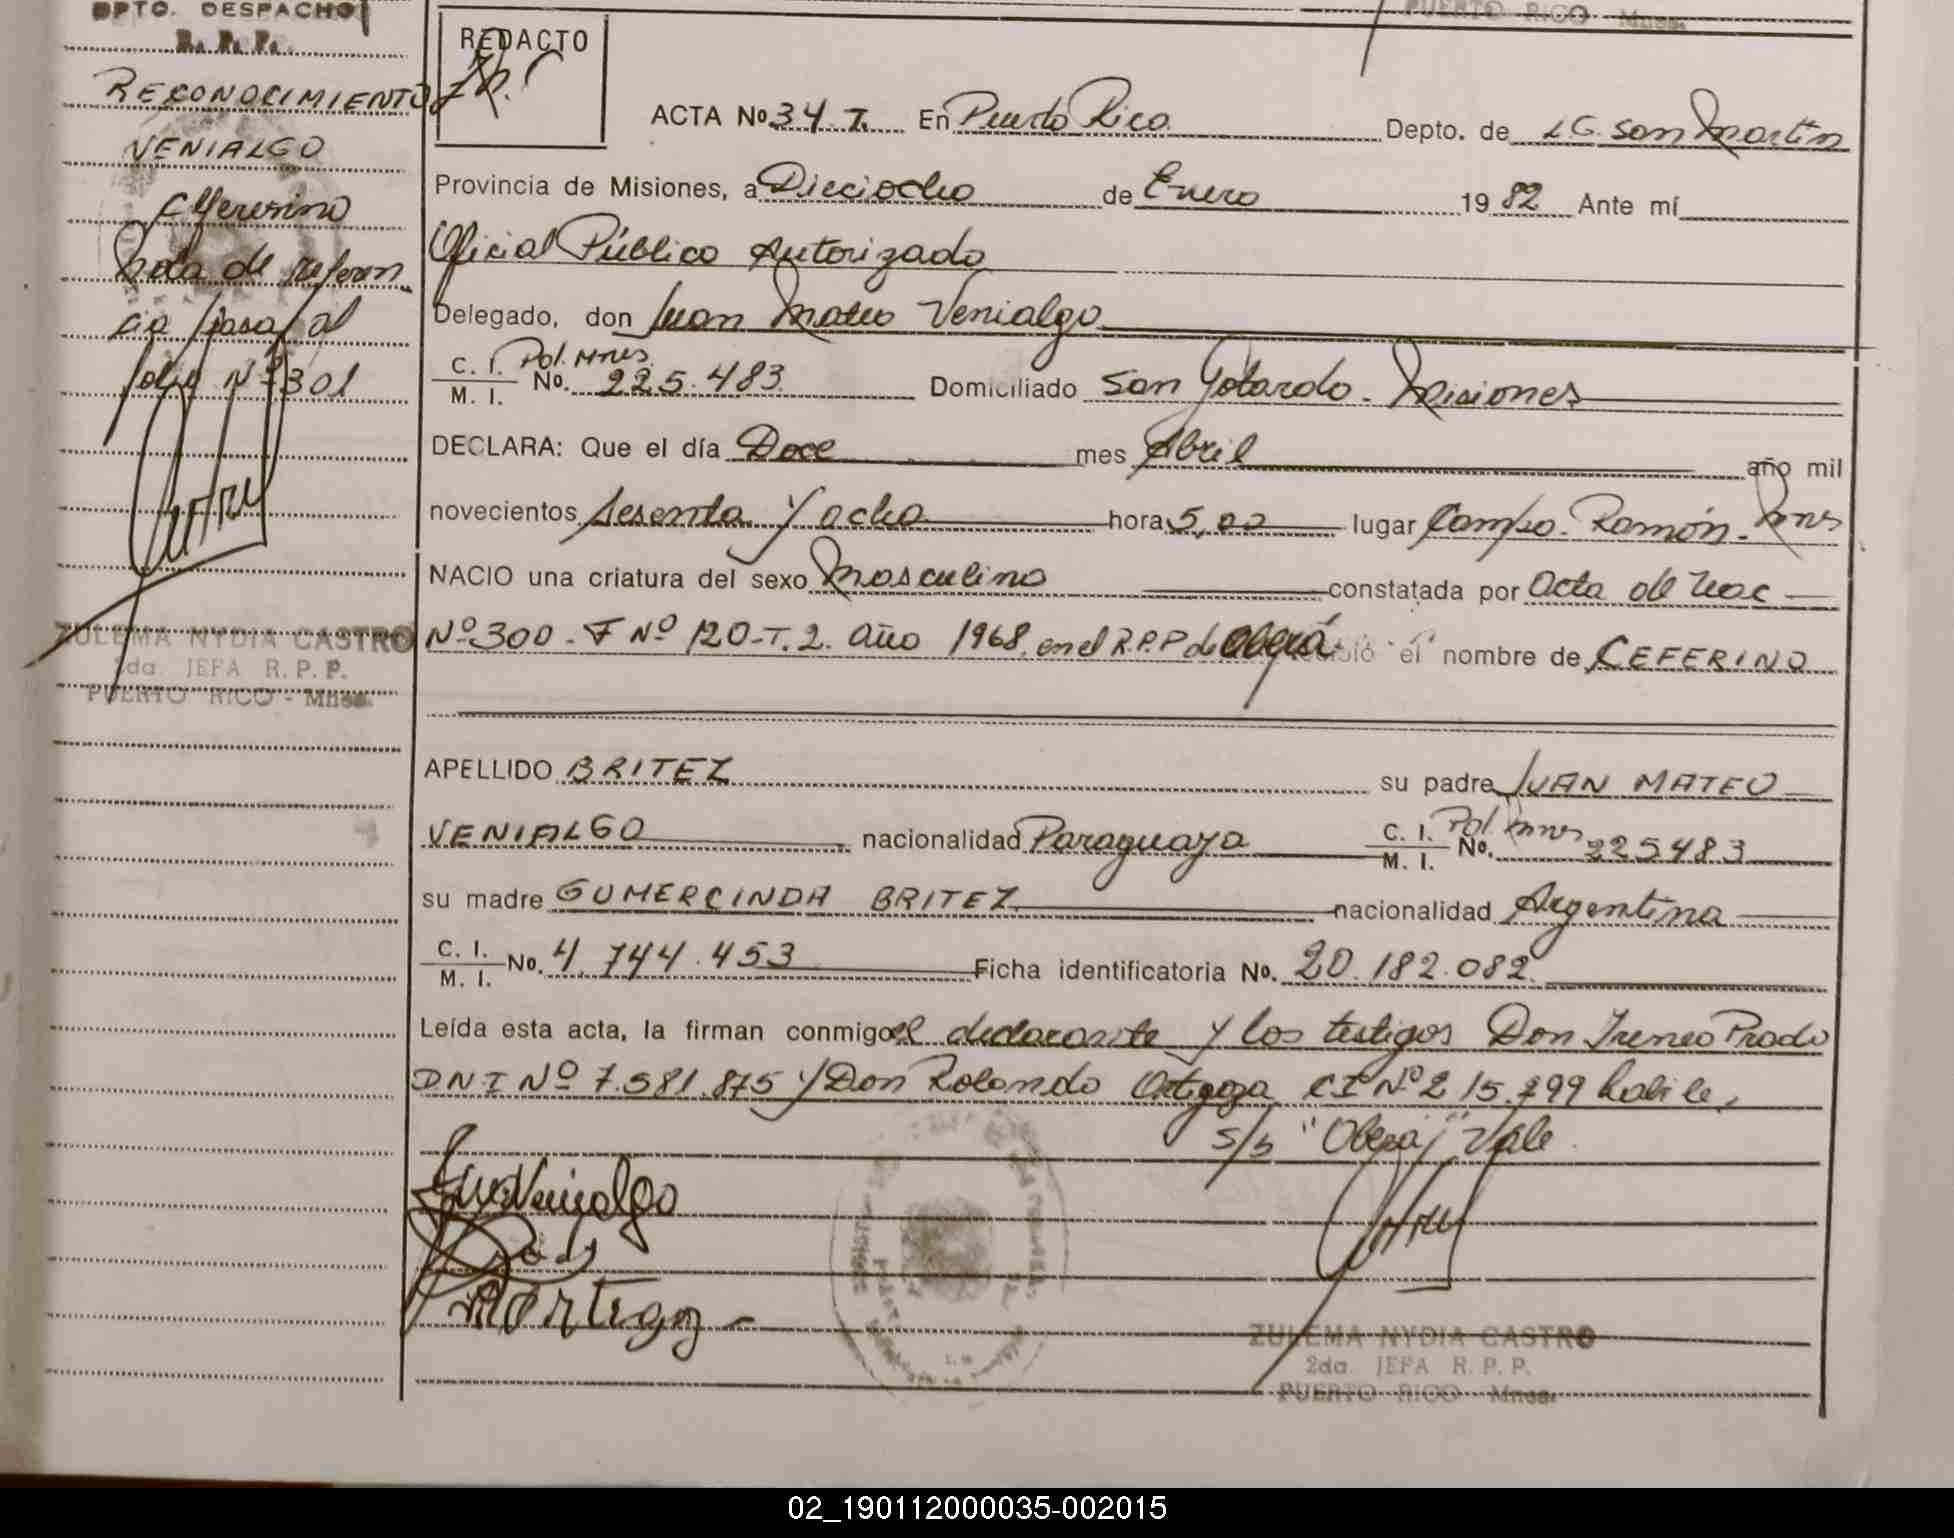 DPTO. DESPACHO
R. P. P.
RECONOCIMIENTO
VENIALGO
Ceferino
Nota de referen
cia pasa al
folio Nº 301
ZULEMA NYDIA CASTRO
2da. JEFA R. P. P.
PUERTO RICO - Mnes.
PUERTO RICO Mnes.
REDACTO
ACTA Nº 34 T. En Puerto Rico Depto. de L.G. San Martín
Provincia de Misiones, a Dieciocho de Enero 1982 Ante mí
Oficial Público Autorizado
Delegado, don Juan Mateo Venialgo
C. I. Pol. Mnes.
M. I. No. 225.483 Domiciliado San Gotardo - Misiones
DECLARA: Que el día Doce mes Abril año mil
novecientos sesenta y ocho hora 5,00 lugar Campo Ramón - Mnes
NACIO una criatura del sexo Masculino constatada por Acta de Nac
Nº 300 - F Nº 120 - T. 2. Año 1968, en el R.P.P de Oberá el nombre de CEFERINO
APELLIDO BRITEZ su padre JUAN MATEO
VENIALGO nacionalidad Paraguaya C. I. Pol. Mnes M. I. No. 225483
su madre GUMERCINDA BRITEZ nacionalidad Argentina
C. I. M. I. No. 4.744.453 Ficha identificatoria No. 20.182.082
Leída esta acta, la firman conmigo el declarante y los testigos Don Ireneo Prado
DNI Nº 7.581.875 y Don Rolando Ortigoza CI Nº 215.799 habile,
S/b "Oberá" Vale
ZULEMA NYDIA CASTRO
2da. JEFA R. P. P.
PUERTO RICO Mnes.
02_190112000035-002015